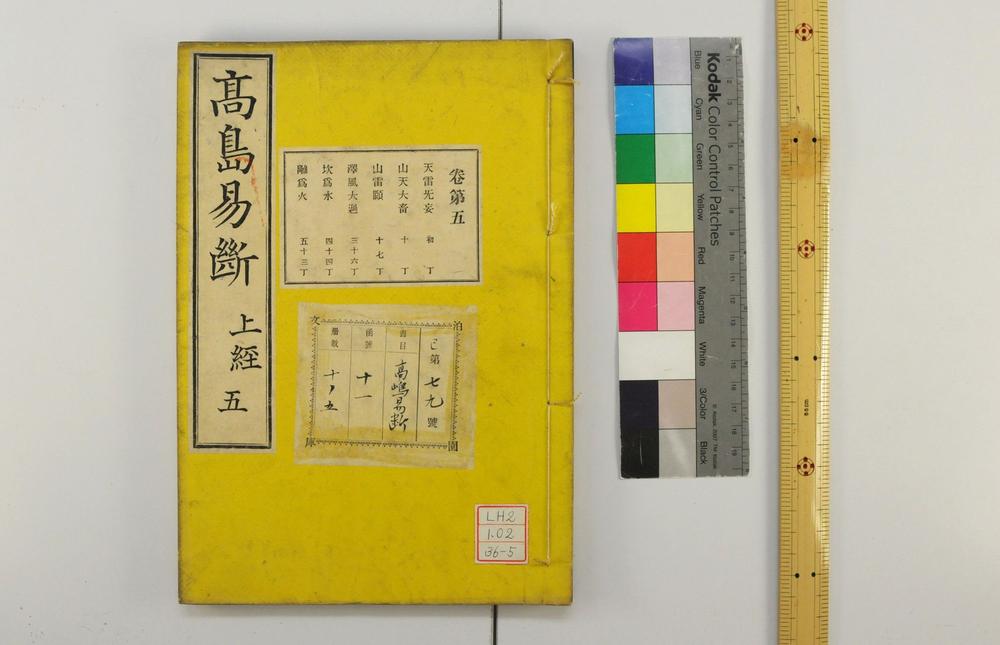 高島易斷 上經 五
卷第五
天雷无妄 初丁
山天大畜 十丁
山雷頤 十七丁
澤風大過 三十六丁
坎爲水 四十四丁
離爲火 五十三丁
泊園文庫
第七九號
書目 高嶋易断
函號 十一
冊數 十ノ五
LH2
1.02
36-5
Kodak Color Control Patches
Blue
Cyan
Green
Yellow
Red
Magenta
White
3/Color
Black